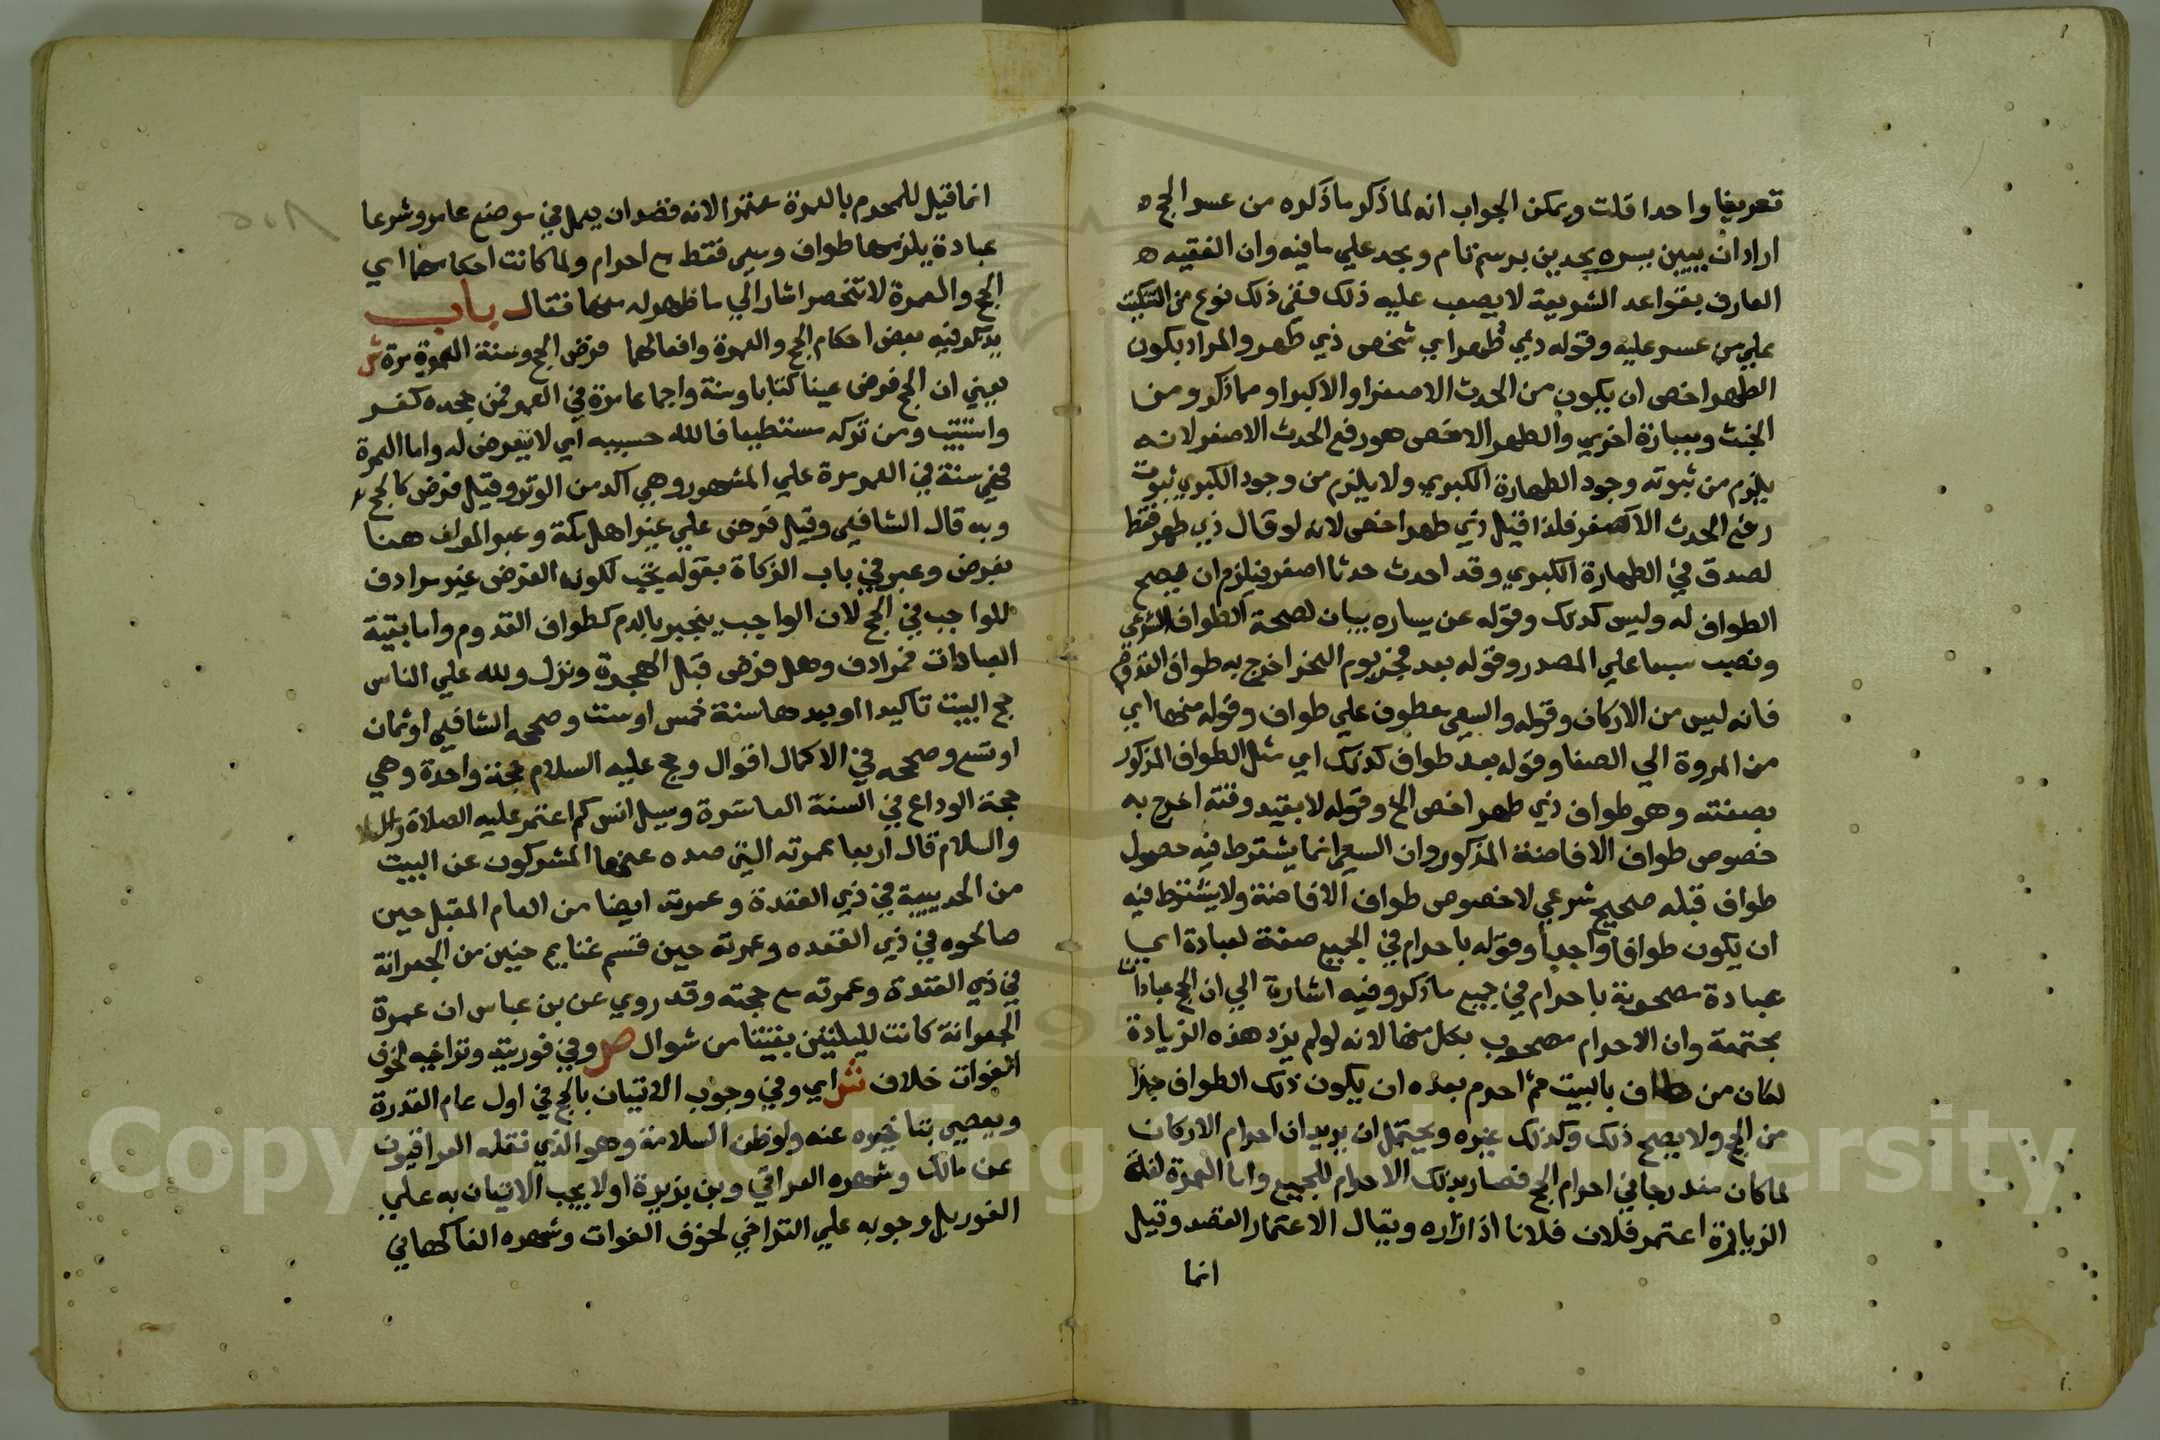 تعريفا واحدا قلت ويمكن الجواب انه لما ذكر ما ذكره من عسر الحج ه
اراد ان يبين يسره بحدين برسم تام وبحد علي ما فيه وان الفقيه ه
العارف بقواعد الشريعة لا يصعب عليه ذلك ففي ذلك نوع من التبكيت
علي من عسر عليه وقوله ذي طهر اي شخص ذي طهر والمراد بكون
الطهر اخص ان يكون من الحدث الاصغر او الاكبر او مما ذكر ومن
الخبث وبعبارة اخري والطهر الاخص هو رفع الحدث الاصغر لانه
يلزم من ثبوته وجود الطهارة الكبري ولا يلزم من وجود الكبري ثبوت
رفع الحدث الاصغر فلذا قيل ذي طهر اخص لانه لو قال ذي طهر فقط
لصدق في الطهارة الكبري وقد احدث حدثا اصغر فيلزم ان يصح
الطواف له وليس كذلك وقوله عن يساره بيان لصحة الطواف الشرعي
ونصب سبعا علي المصدر وقوله بعد فجر يوم النحر اخرج به طواف القدوم
فانه ليس من الاركان وقوله والسعي معطوف علي طواف وقوله منها اي
من المروة الي الصفا وقوله بعد طواف كذلك اي مثل الطواف المذكور
بصفته وهو طواف ذي طهر اخص الخ وقوله لا بقيد وقته اخرج به
خصوص طواف الافاضة المذكور وان السعي انما يشترط فيه حصول
طواف قبله صحيح شرعي لا خصوص طواف الافاضة ولا يشترط فيه
ان يكون طوافا واجبا وقوله باحرام في الجميع صفة لعبادة اي
عبادة مصحوبة باحرام في جميع ما ذكر وفيه اشارة الي ان الحج عبادات
مجتمعة وان الاحرام مصحوب بكل منها لانه لو لم يزد هذه الزيادة
لكان من طاف بالبيت ثم احرم بعده ان يكون ذلك الطواف جزا
من الحج ولا يصح ذلك وكذلك غيره ويحتمل ان يريد ان احرام الاركان
لما كان مندرجا في احرام الحج فصار بذلك الاحرام للجميع واما العمرة لغة
الزيارة اعتمر فلان فلانا اذا زاره ويقال الاعتمار القصد وقيل
انما
انما قيل للمحرم بالعمرة معتمرا لانه قصد ان يعمل في موضع عامر وشرعا
عبادة يلزمها طواف وسعي فقط مع احرام ولما كانت احكامهما اي
الحج والعمرة لا تنحصر اشار الي ما ظهر له منها فقال باب
يذكر فيه بعض احكام الحج والعمرة وافعالهما فرض الحج وسنة العمرة مرة ش
يعني ان الحج فرض عينا كتابا وسنة واجماعا مرة في العمر فمن جحده كفر
واستتيب ومن تركه مستطيعا فالله حسيبه اي لا يتعرض له واما العمرة
فهي سنة في العمر مرة علي المشهور وهي اكد من الوتر وقيل فرض كالحج
وبه قال الشافعي وقيل فرض علي غير اهل مكة وعبر المولف هنا
بفرض وعبر في باب الزكاة بقوله يجب لكون الفرض غير مرادف
للواجب في الحج لان الواجب ينجبر بالدم كطواف القدوم واما بقية
العبادات فمرادف وهل فرض قبل الهجرة ونزل ولله علي الناس
حج البيت تاكيدا او بعدها سنة خمس او ست وصححه الشافعي او ثمان
او تسع وصححه في الاكمال اقوال وحج عليه السلام حجة واحدة وهي
حجة الوداع في السنة العاشرة وسيل انس كم اعتمر عليه الصلاة
والسلام قال اربعا عمرته التي صده عنها المشركون عن البيت
من الحديبية في ذي القعدة وعمرته ايضا من العام المقبل حين
صالحوه في ذي القعده وعمرته حين قسم غنايم حنين من الجعرانة
في ذي القعدة وعمرته مع حجته وقد روي عن بن عباس ان عمرة
الجعرانة كانت لليلتين بقيتا من شوال ص وفي فوريته وتراخيه لخوف
الفوات خلاف ش اي وفي وجوب الاتيان بالحج في اول عام القدرة
ويعصي بتاخيره عنه ولو ظن السلامة وهو الذي نقله العراقيون
عن مالك وشهره العراقي وبن بزيزة او لا يجب الاتيان به علي
الفور بل وجوبه علي التراخي لخوف الفوات وشهره الفاكهاني
Copyright © King Saud University